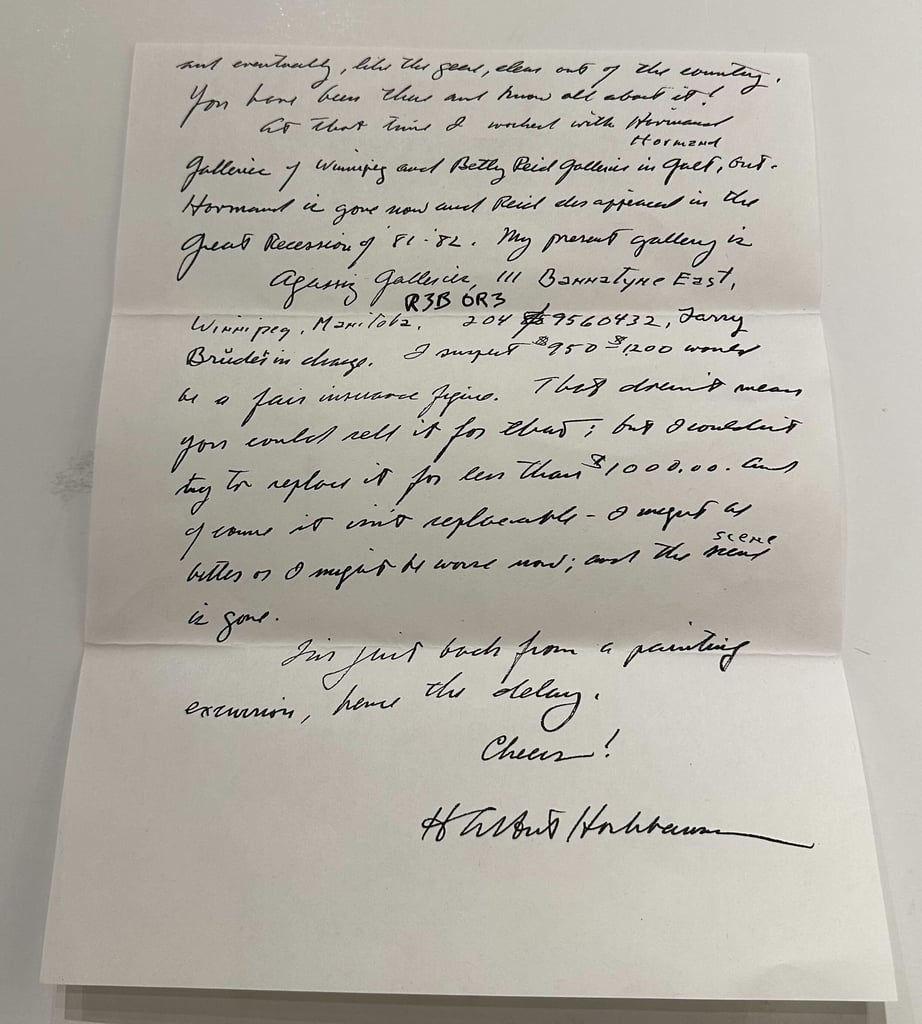 and eventually, like the geese, clear out of the country.
You have been there and know all about it!
At that time I worked with Hormand
Hormand
Galleries of Winnipeg and Betty Reid Galleries in Galt, Ont.
Hormand is gone now and Reid disappeared in the
Great Recession of '81-'82. My present gallery is
Agassiz Galleries, 111 Bannatyne East,
R3B 0R3
Winnipeg, Manitoba. 204 9560432,
in charge. I suspect $950 - $1200 would
be a fair insurance figure. That doesn't mean
you could sell it for that; but I wouldn't
try to replace it for less than $1000.00. And
of course it isn't replaceable - I might be
scene
better or I might be worse now; and the scene
is gone.
I'm just back from a painting
excursion, hence the delay.
Cheers!
H Albert Hochbaum